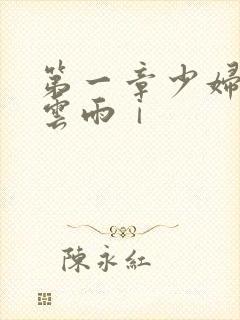 第一章少婦
雲雨｜
陳永紅